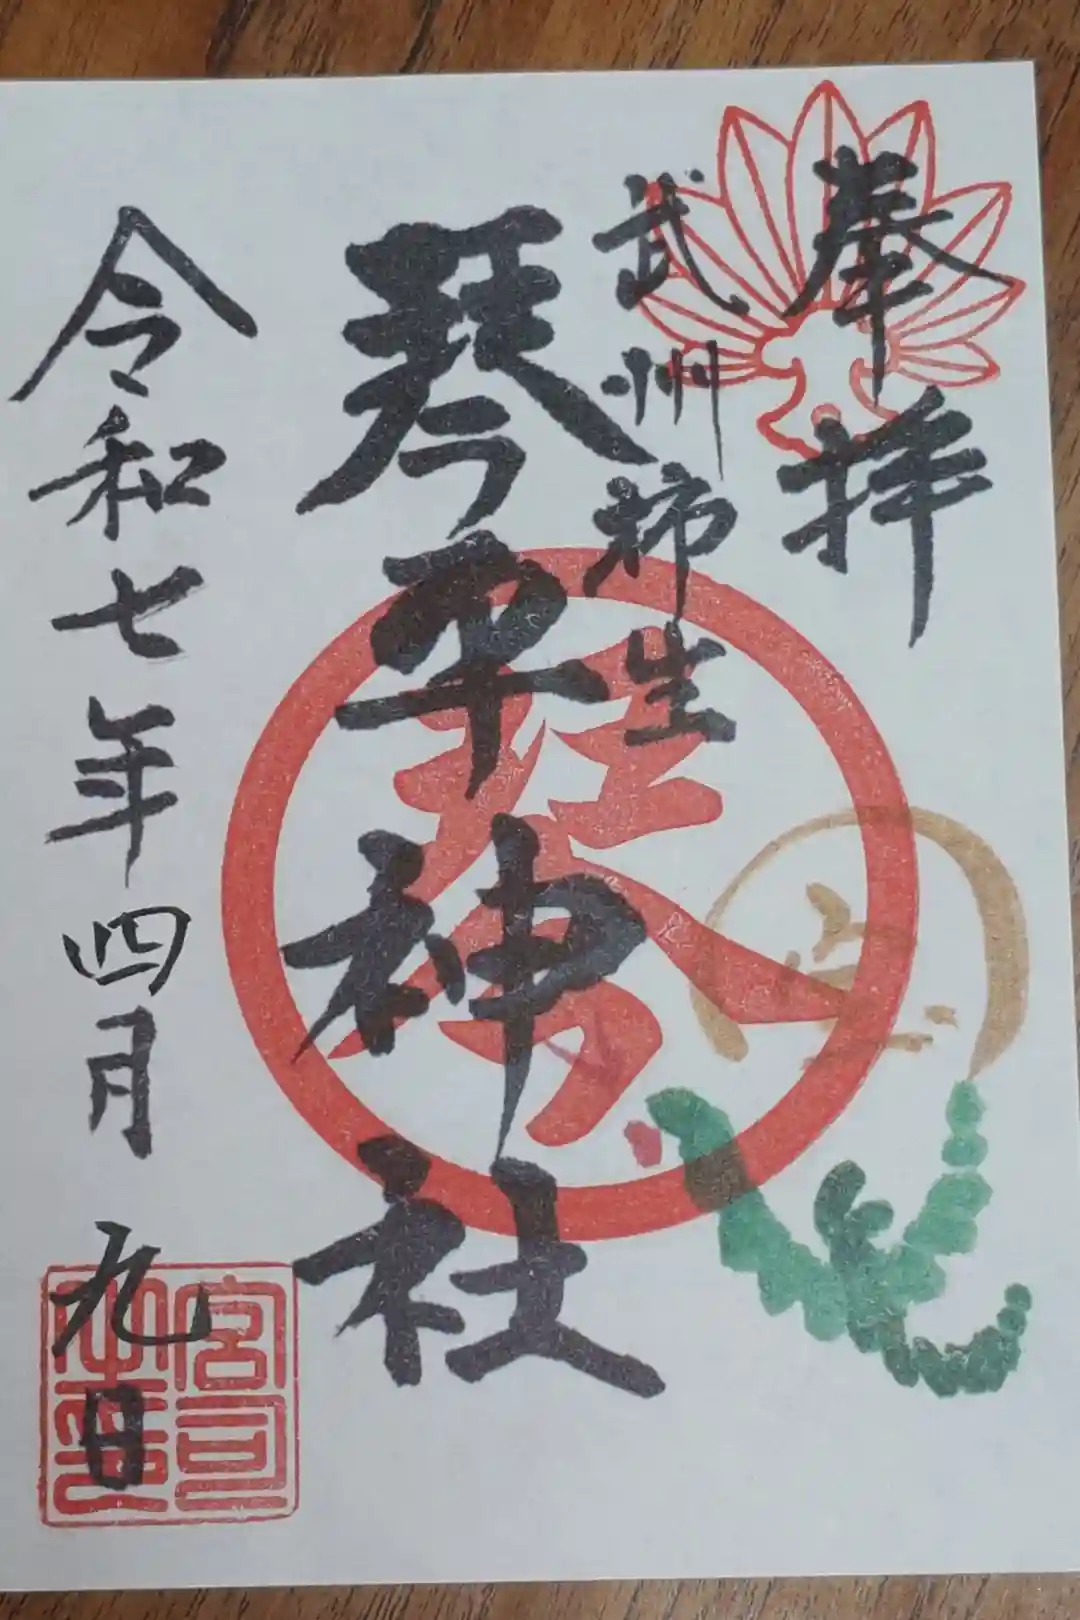 奉拝
武州柿生
琴平神社
令和七年四月九日
宮司之印